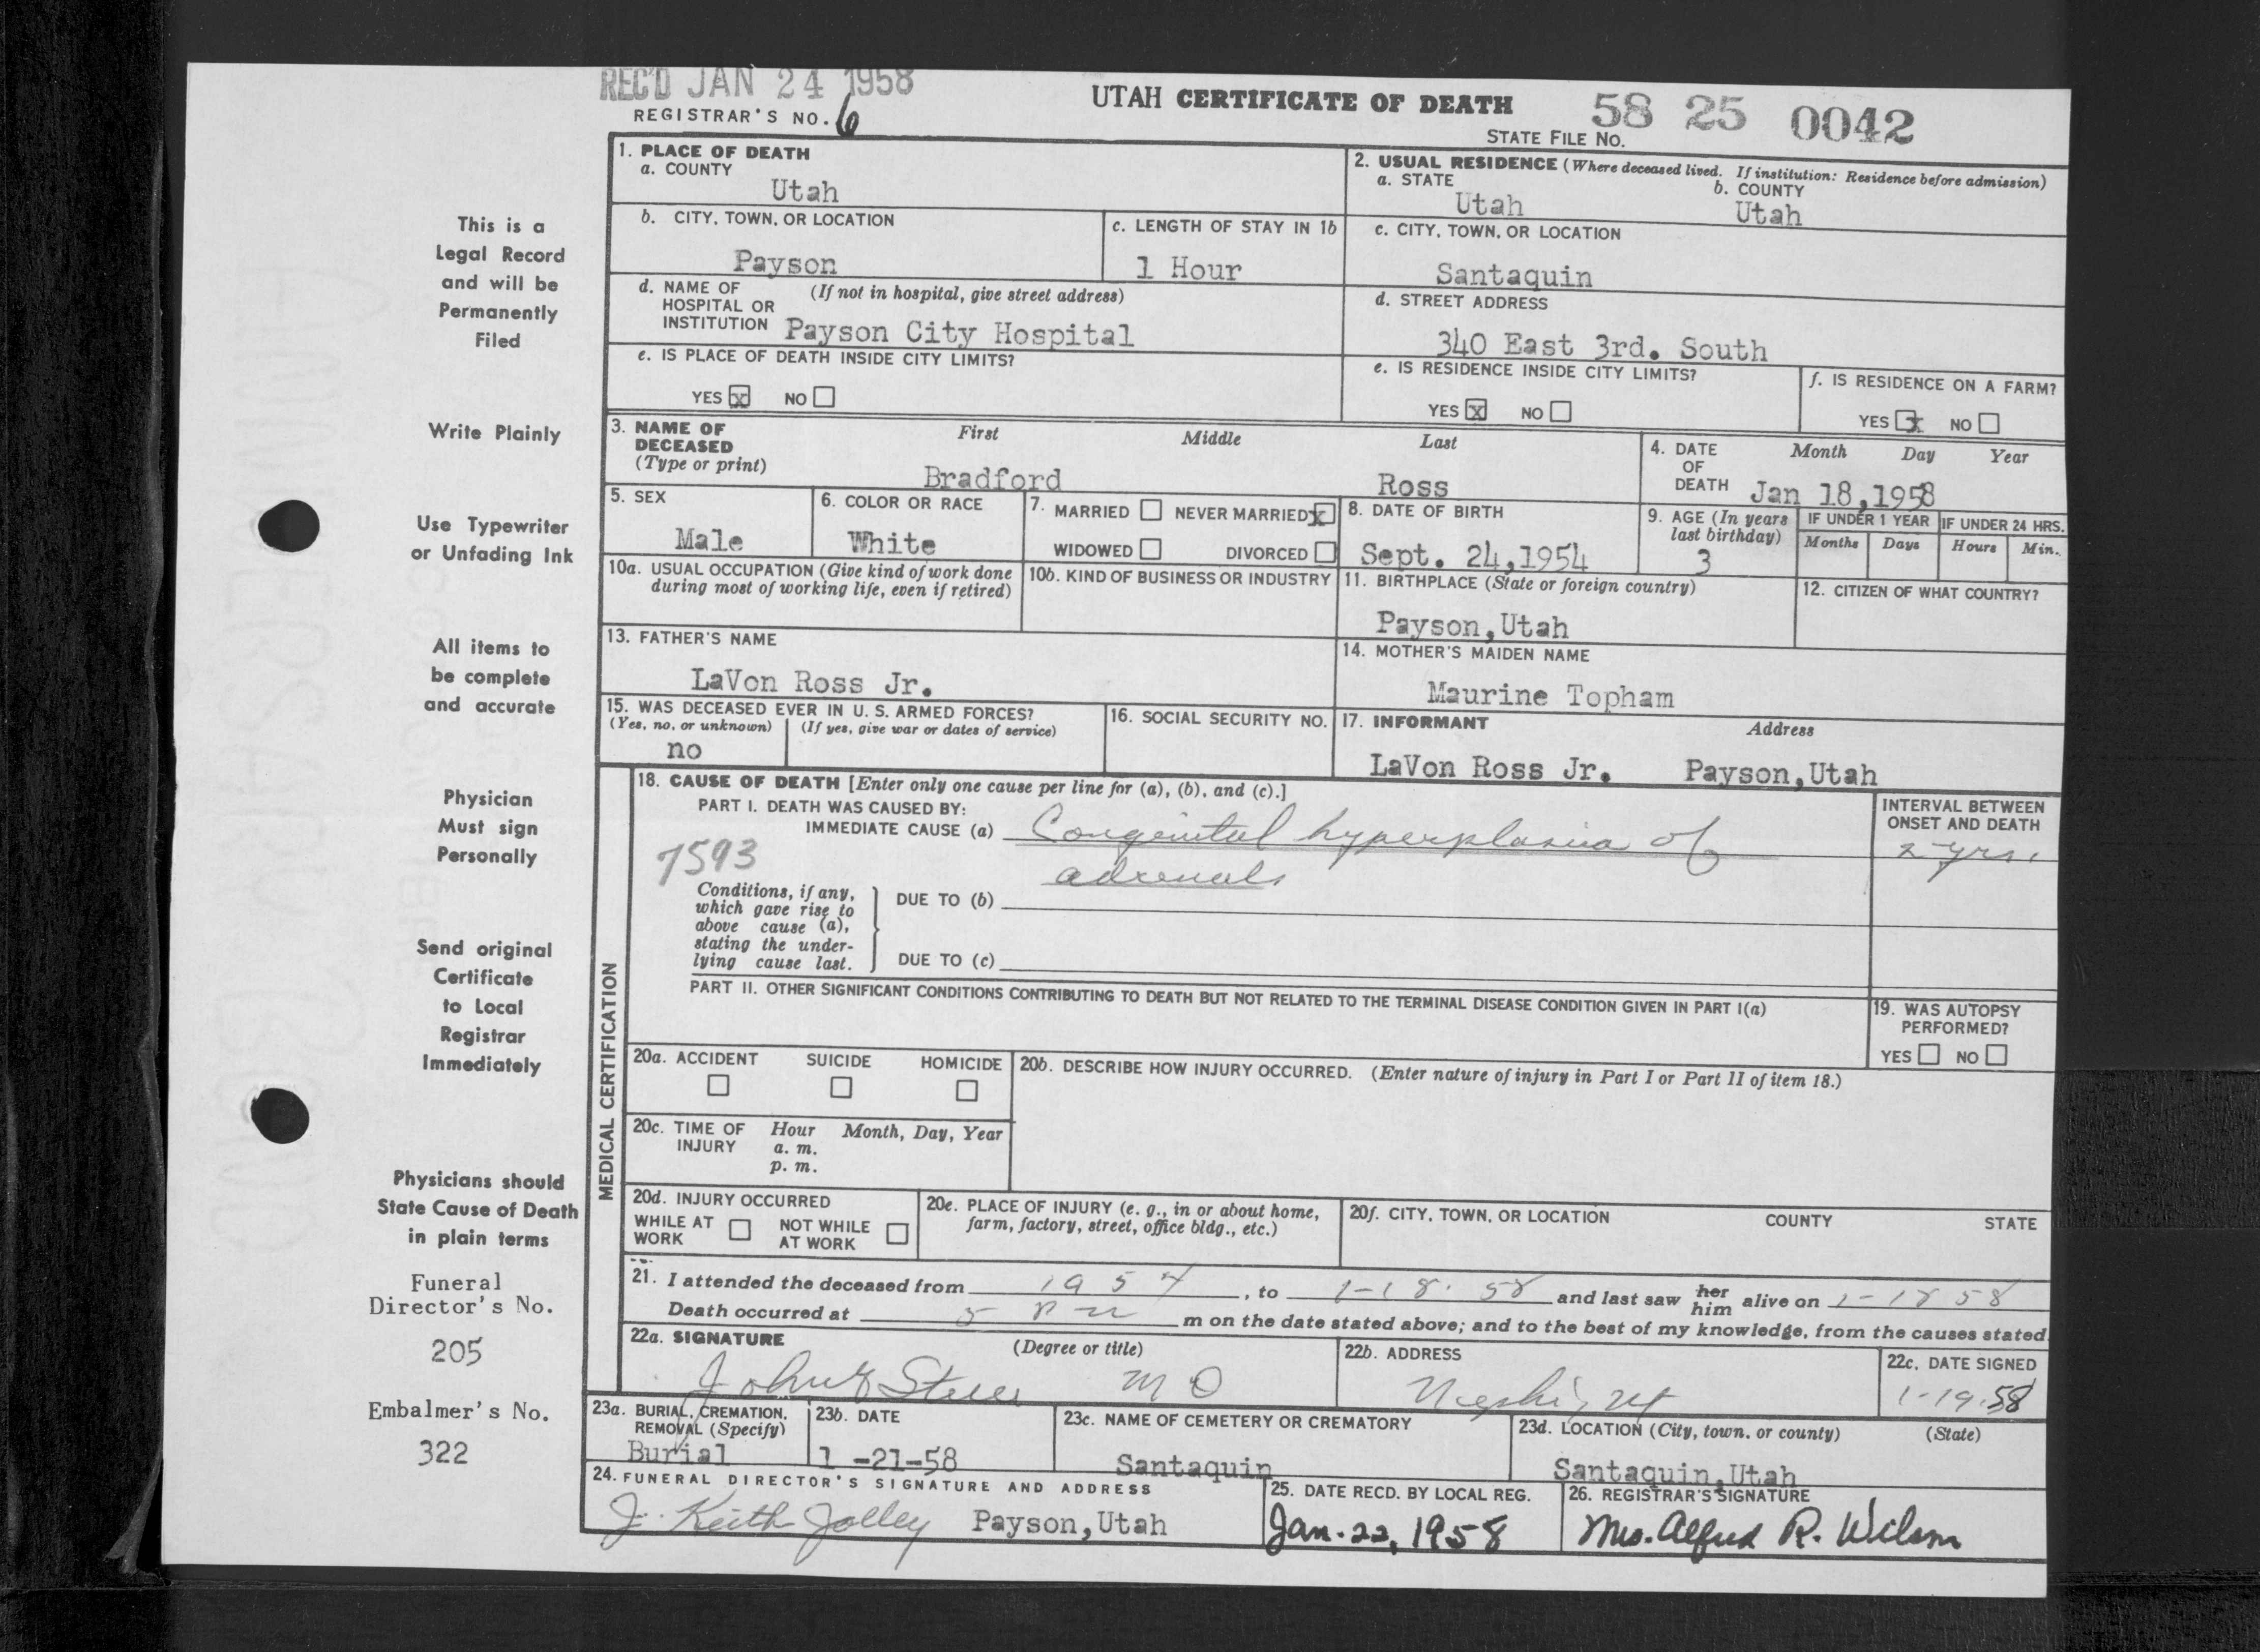 REC'D JAN 24 1958
REGISTRAR'S NO. 6
UTAH CERTIFICATE OF DEATH
58 25 0042
STATE FILE NO.
This is a
Legal Record
and will be
Permanently
Filed
Write Plainly
Use Typewriter
or Unfading Ink
All items to
be complete
and accurate
Physician
Must sign
Personally
Send original
Certificate
to Local
Registrar
Immediately
Physicians should
State Cause of Death
in plain terms
Funeral
Director's No.
205
Embalmer's No.
322
1. PLACE OF DEATH
a. COUNTY
Utah
2. USUAL RESIDENCE (Where deceased lived. If institution: Residence before admission)
a. STATE
Utah
b. COUNTY
Utah
b. CITY, TOWN, OR LOCATION
Payson
c. LENGTH OF STAY IN 1b
1 Hour
c. CITY, TOWN, OR LOCATION
Santaquin
d. NAME OF HOSPITAL OR INSTITUTION
(If not in hospital, give street address)
Payson City Hospital
d. STREET ADDRESS
340 East 3rd. South
e. IS PLACE OF DEATH INSIDE CITY LIMITS?
YES x NO
e. IS RESIDENCE INSIDE CITY LIMITS?
YES x NO
f. IS RESIDENCE ON A FARM?
YES x NO
3. NAME OF DECEASED
(Type or print)
First Middle Last
Bradford Ross
4. DATE OF DEATH
Month Day Year
Jan 18,1958
5. SEX
Male
6. COLOR OR RACE
White
7. MARRIED NEVER MARRIED x
WIDOWED DIVORCED
8. DATE OF BIRTH
Sept. 24,1954
9. AGE (In years last birthday)
3
IF UNDER 1 YEAR
Months Days
IF UNDER 24 HRS.
Hours Min.
10a. USUAL OCCUPATION (Give kind of work done during most of working life, even if retired)
10b. KIND OF BUSINESS OR INDUSTRY
11. BIRTHPLACE (State or foreign country)
Payson,Utah
12. CITIZEN OF WHAT COUNTRY?
13. FATHER'S NAME
LaVon Ross Jr.
14. MOTHER'S MAIDEN NAME
Maurine Topham
15. WAS DECEASED EVER IN U. S. ARMED FORCES?
(Yes, no, or unknown) (If yes, give war or dates of service)
no
16. SOCIAL SECURITY NO.
17. INFORMANT Address
LaVon Ross Jr. Payson,Utah
MEDICAL CERTIFICATION
18. CAUSE OF DEATH [Enter only one cause per line for (a), (b), and (c).]
PART I. DEATH WAS CAUSED BY:
IMMEDIATE CAUSE (a) Congenital hyperplasia of
adrenals
7593
INTERVAL BETWEEN ONSET AND DEATH
2 yrs.
Conditions, if any, which gave rise to above cause (a), stating the underlying cause last.
DUE TO (b)
DUE TO (c)
PART II. OTHER SIGNIFICANT CONDITIONS CONTRIBUTING TO DEATH BUT NOT RELATED TO THE TERMINAL DISEASE CONDITION GIVEN IN PART I(a)
19. WAS AUTOPSY PERFORMED?
YES NO
20a. ACCIDENT SUICIDE HOMICIDE
20b. DESCRIBE HOW INJURY OCCURRED. (Enter nature of injury in Part I or Part II of item 18.)
20c. TIME OF INJURY
Hour Month, Day, Year
a. m.
p. m.
20d. INJURY OCCURRED
WHILE AT WORK NOT WHILE AT WORK
20e. PLACE OF INJURY (e. g., in or about home, farm, factory, street, office bldg., etc.)
20f. CITY, TOWN, OR LOCATION COUNTY STATE
21. I attended the deceased from 1957, to 1-18-58 and last saw her him alive on 1-18 58
Death occurred at 5 P m m on the date stated above; and to the best of my knowledge, from the causes stated.
22a. SIGNATURE (Degree or title)
John MD
22b. ADDRESS
Nephi, Ut
22c. DATE SIGNED
1-19-58
23a. BURIAL, CREMATION, REMOVAL (Specify)
Burial
23b. DATE
1 -21-58
23c. NAME OF CEMETERY OR CREMATORY
Santaquin
23d. LOCATION (City, town, or county) (State)
Santaquin,Utah
24. FUNERAL DIRECTOR'S SIGNATURE AND ADDRESS
J. Keith Jolley Payson,Utah
25. DATE RECD. BY LOCAL REG.
Jan. 22, 1958
26. REGISTRAR'S SIGNATURE
Mrs. Alfred R. Wilson